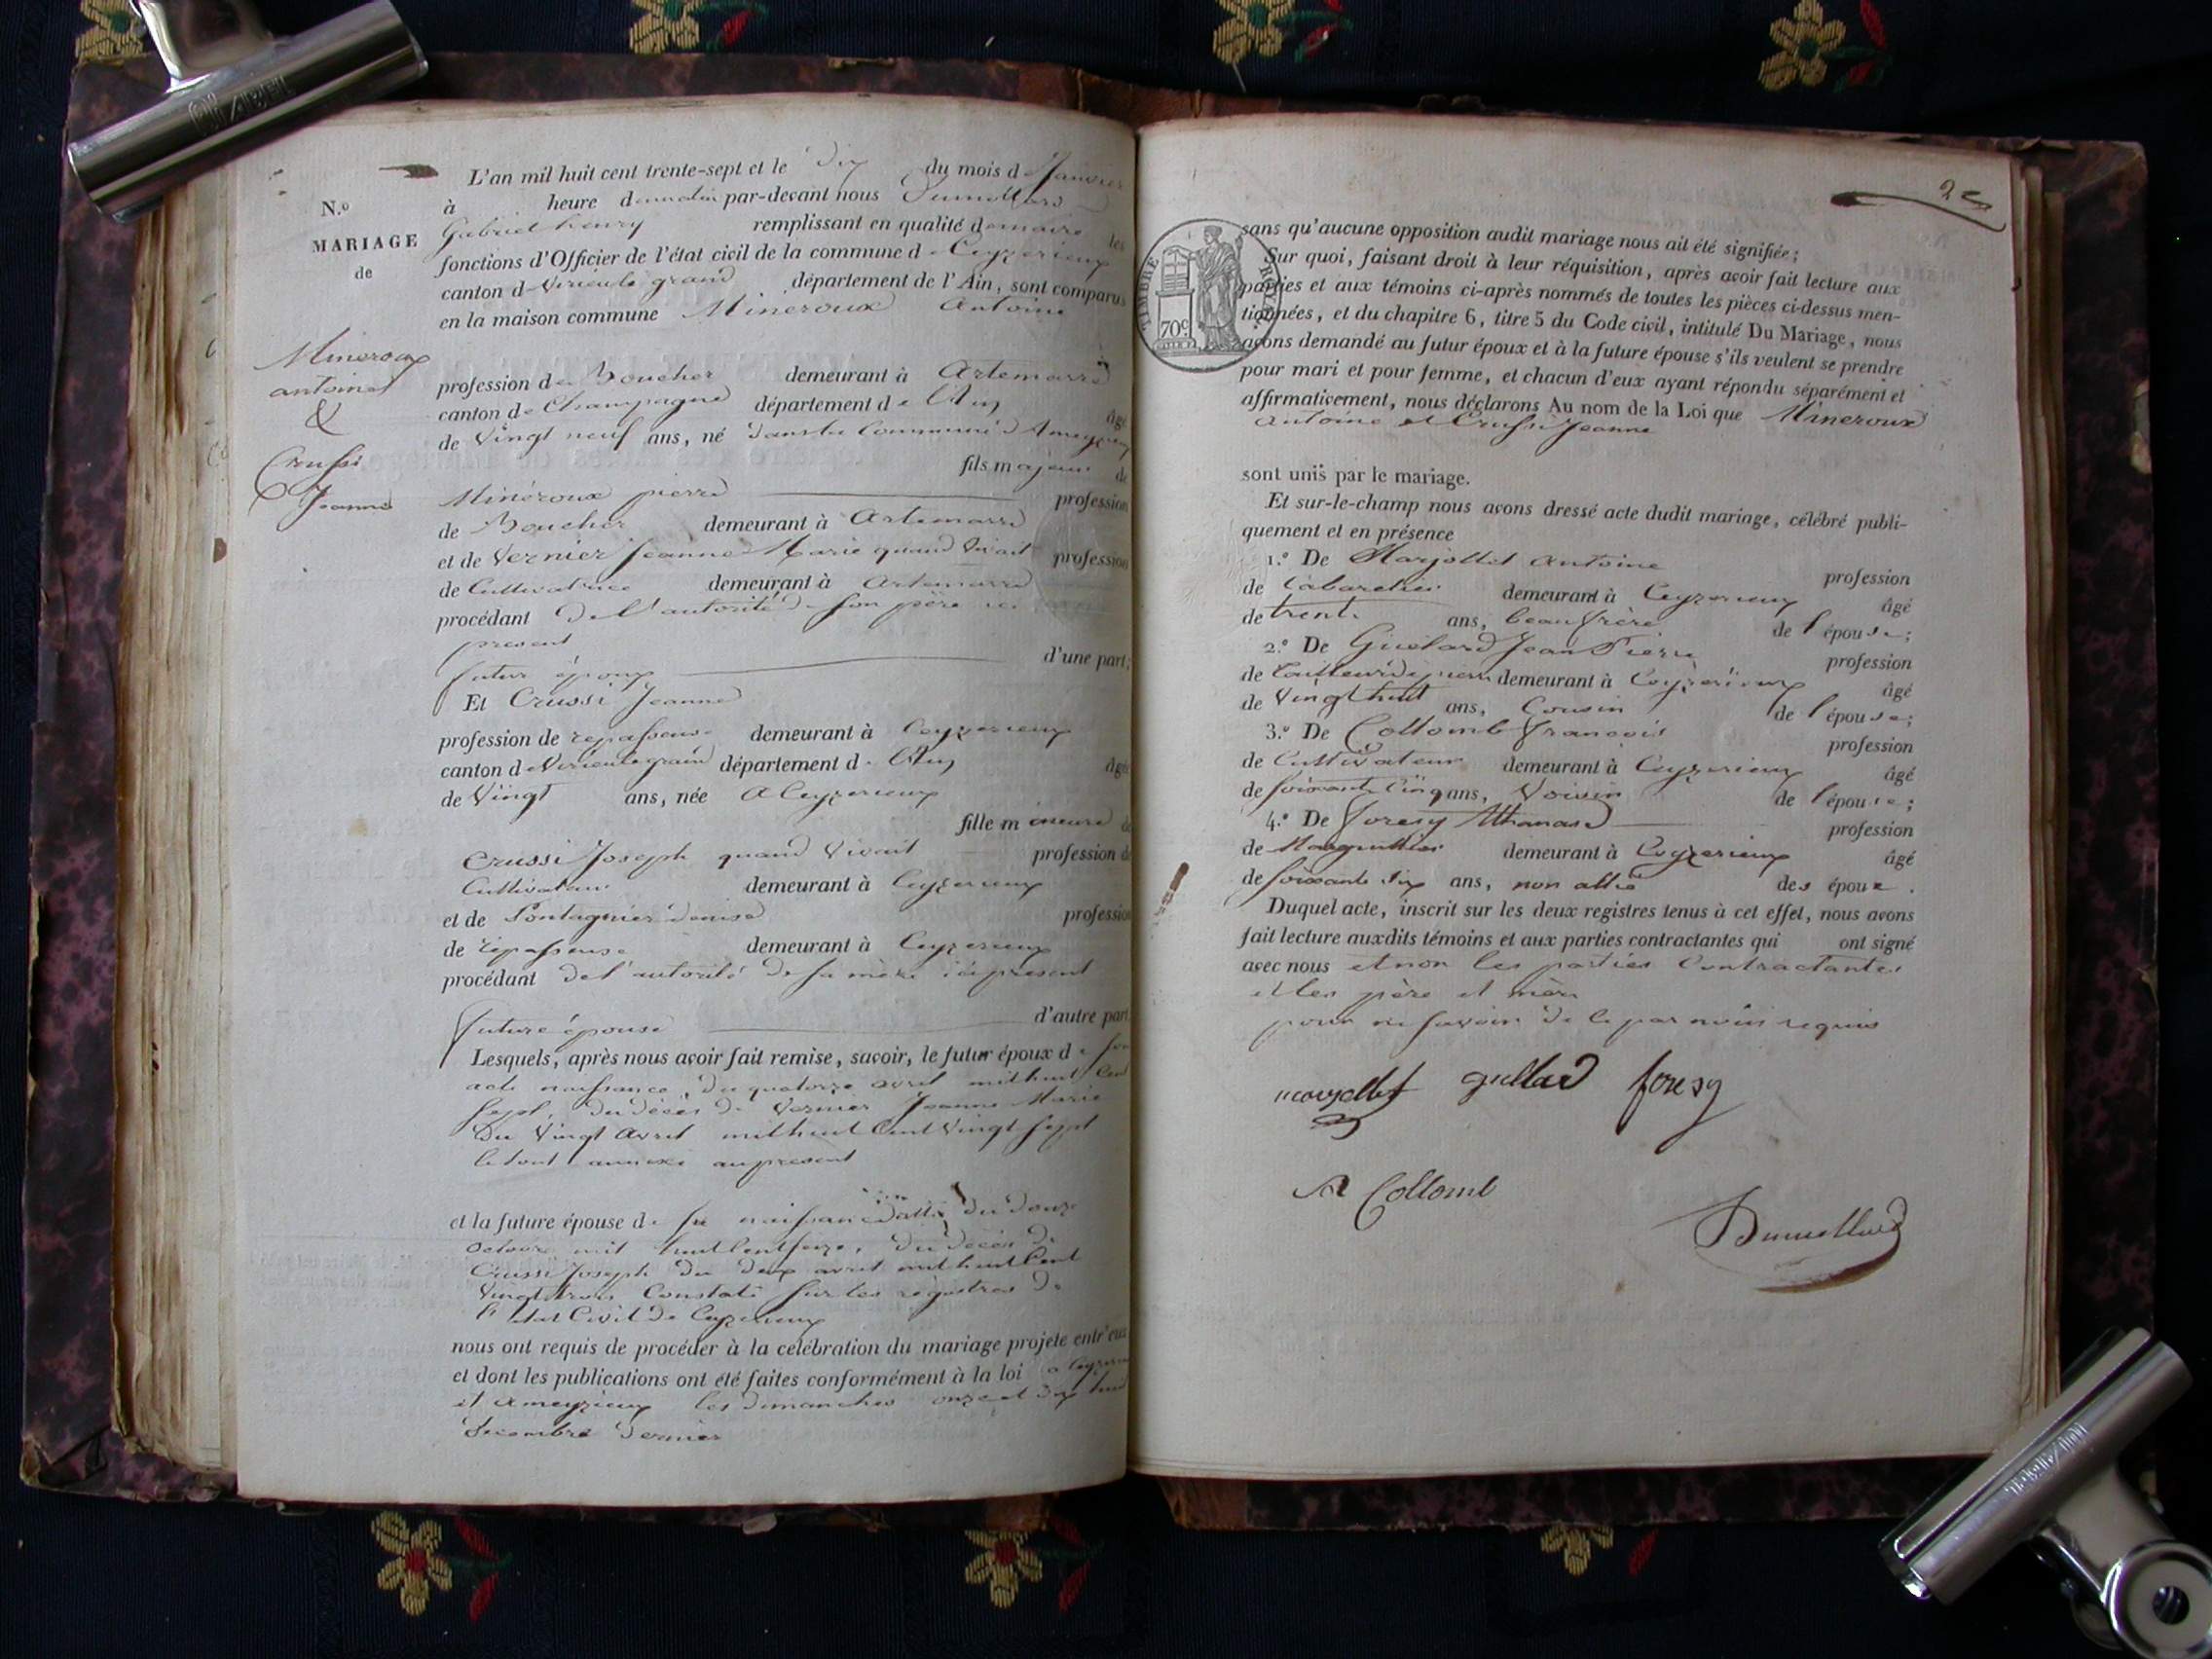 L'an mil huit cent trente-sept et le dix du mois de Janvier
N.º
à heure du matin par-devant nous Dumollard
MARIAGE
Gabriel henry remplissant en qualité de maire les
de
fonctions d'Officier de l'état civil de la commune de Ceyzerieux
canton de Virieu le grand département de l'Ain, sont comparus
en la maison commune Mineroux Antoine
Mineroux
antoine
&
Crussi
Jeanne
profession de Boucher demeurant à Artemarre
canton de Champagne département de l'Ain âgé
de Vingt neuf ans, né dans la Commune d'Ameyzieux
fils majeur de
Minéroux pierre profession
de Boucher demeurant à Artemarre
et de Vernier Jeanne Marie quand vivait profession
de Cultivatrice demeurant à Artemarre
procédant de l'autorité de son père ici
present
futur époux d'une part;
Et Crussi Jeanne
profession de repasseuse demeurant à Ceyzerieux
canton de Virieu le grand département de l'Ain âgée
de Vingt ans, née à Ceyzerieux
fille mineure de
Crussi Joseph quand vivait profession de
Cultivateur demeurant à Ceyzerieux
et de Pontagnier denise profession
de repasseuse demeurant à Ceyzerieux
procédant de l'autorité de sa mère ici present
future épouse d'autre part
Lesquels, après nous avoir fait remise, savoir, le futur époux de son
acte naissance, du quatorze avril mil huit cent
sept, du décès de Vernier Jeanne Marie
du vingt avril mil huit cent vingt sept
le tout annexé au present
et la future épouse de sa naissance du douze
octobre mil huit cent seize, du décès de
Crussi Joseph du deux avril mil huit cent
vingt trois Constaté sur les registres de
l'etat Civil de Ceyzerieux
nous ont requis de procéder à la célébration du mariage projeté entr'eux
et dont les publications ont été faites conformément à la loi a Ceyzerieux
et Ameyzieux les dimanches onze et dix huit
decembre dernier
TIMBRE ROYAL
70c
sans qu'aucune opposition audit mariage nous ait été signifiée;
Sur quoi, faisant droit à leur réquisition, après avoir fait lecture aux
parties et aux témoins ci-après nommés de toutes les pièces ci-dessus men-
tionnées, et du chapitre 6, titre 5 du Code civil, intitulé Du Mariage, nous
avons demandé au futur époux et à la future épouse s'ils veulent se prendre
pour mari et pour femme, et chacun d'eux ayant répondu séparément et
affirmativement, nous déclarons Au nom de la Loi que Mineroux
Antoine et Crussi Jeanne
sont unis par le mariage.
Et sur-le-champ nous avons dressé acte dudit mariage, célébré publi-
quement et en présence
1.º De Marjollet Antoine profession
de Cabaretier demeurant à Ceyzerieux âgé
de trente ans, beau frère de l'épouse;
2.º De Guelard Jean Pierre profession
de tailleur de pierre demeurant à Ceyzerieux âgé
de Vingt huit ans, Cousin de l'épouse;
3.º De Collomb François profession
de Cultivateur demeurant à Ceyzerieux âgé
de soixante Cinq ans, Voisin de l'épouse;
4.º De Foresy Athanase profession
de Marguillier demeurant à Ceyzerieux âgé
de soixante dix ans, non allié des époux.
Duquel acte, inscrit sur les deux registres tenus à cet effet, nous avons
fait lecture auxdits témoins et aux parties contractantes qui ont signé
avec nous et non les parties Contractantes
et les père et mère
pour ne savoir de ce par nous requis
gullard foresy
Collomb
Dumollard